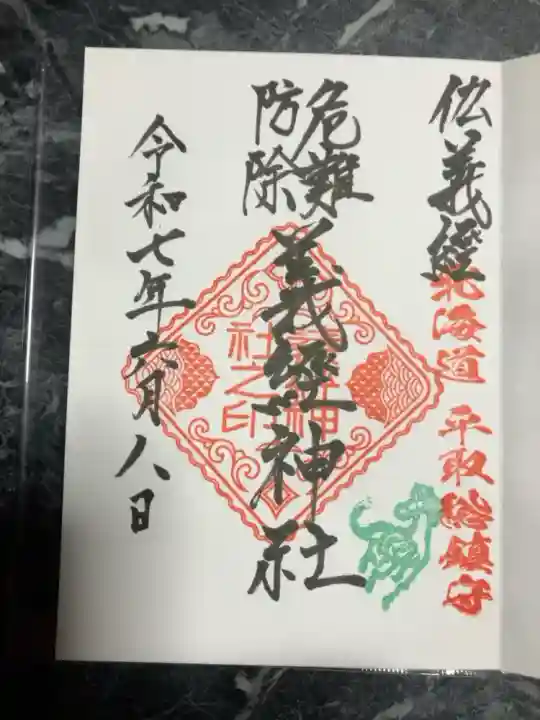 仏義經
北海道 平取総鎮守
危難
防除
義經神社
社之印
令和七年六月八日